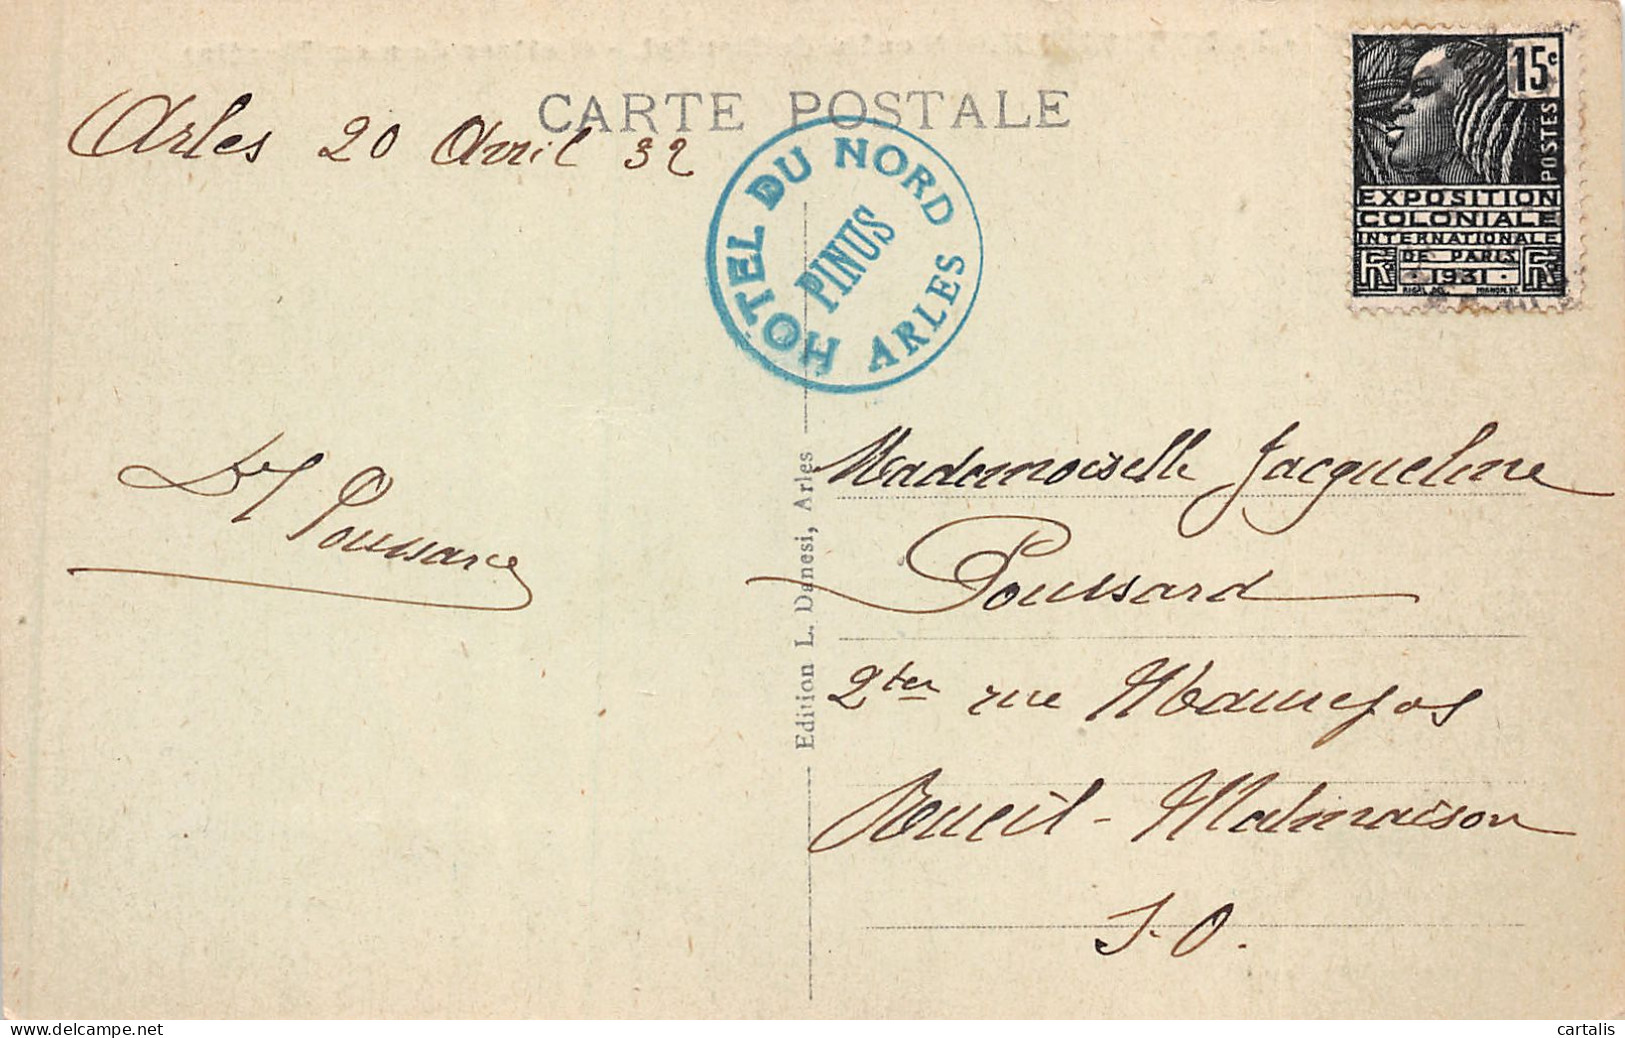 CARTE POSTALE
Arles 20 Avril 32
HOTEL DU NORD
PINUS
ARLES
15c
POSTES
EXPOSITION
COLONIALE
INTERNATIONALE
DE PARIS
RF 1931 RF
Edition L. Danesi, Arles
Mademoiselle Jacqueline
Poussard
2ter rue
Rueil-Malmaison
S.O.
cartalis
delcampe.net